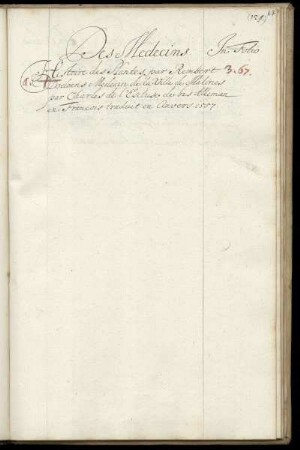 (151)
Des Medecins. In Folio
1. Histoire des Plantes, par Rembert 3.67.
Dodoens Medecin de la Ville de Malines
par Charles de l'Escluse de bas Aleman
en François traduit en Anvers 1557